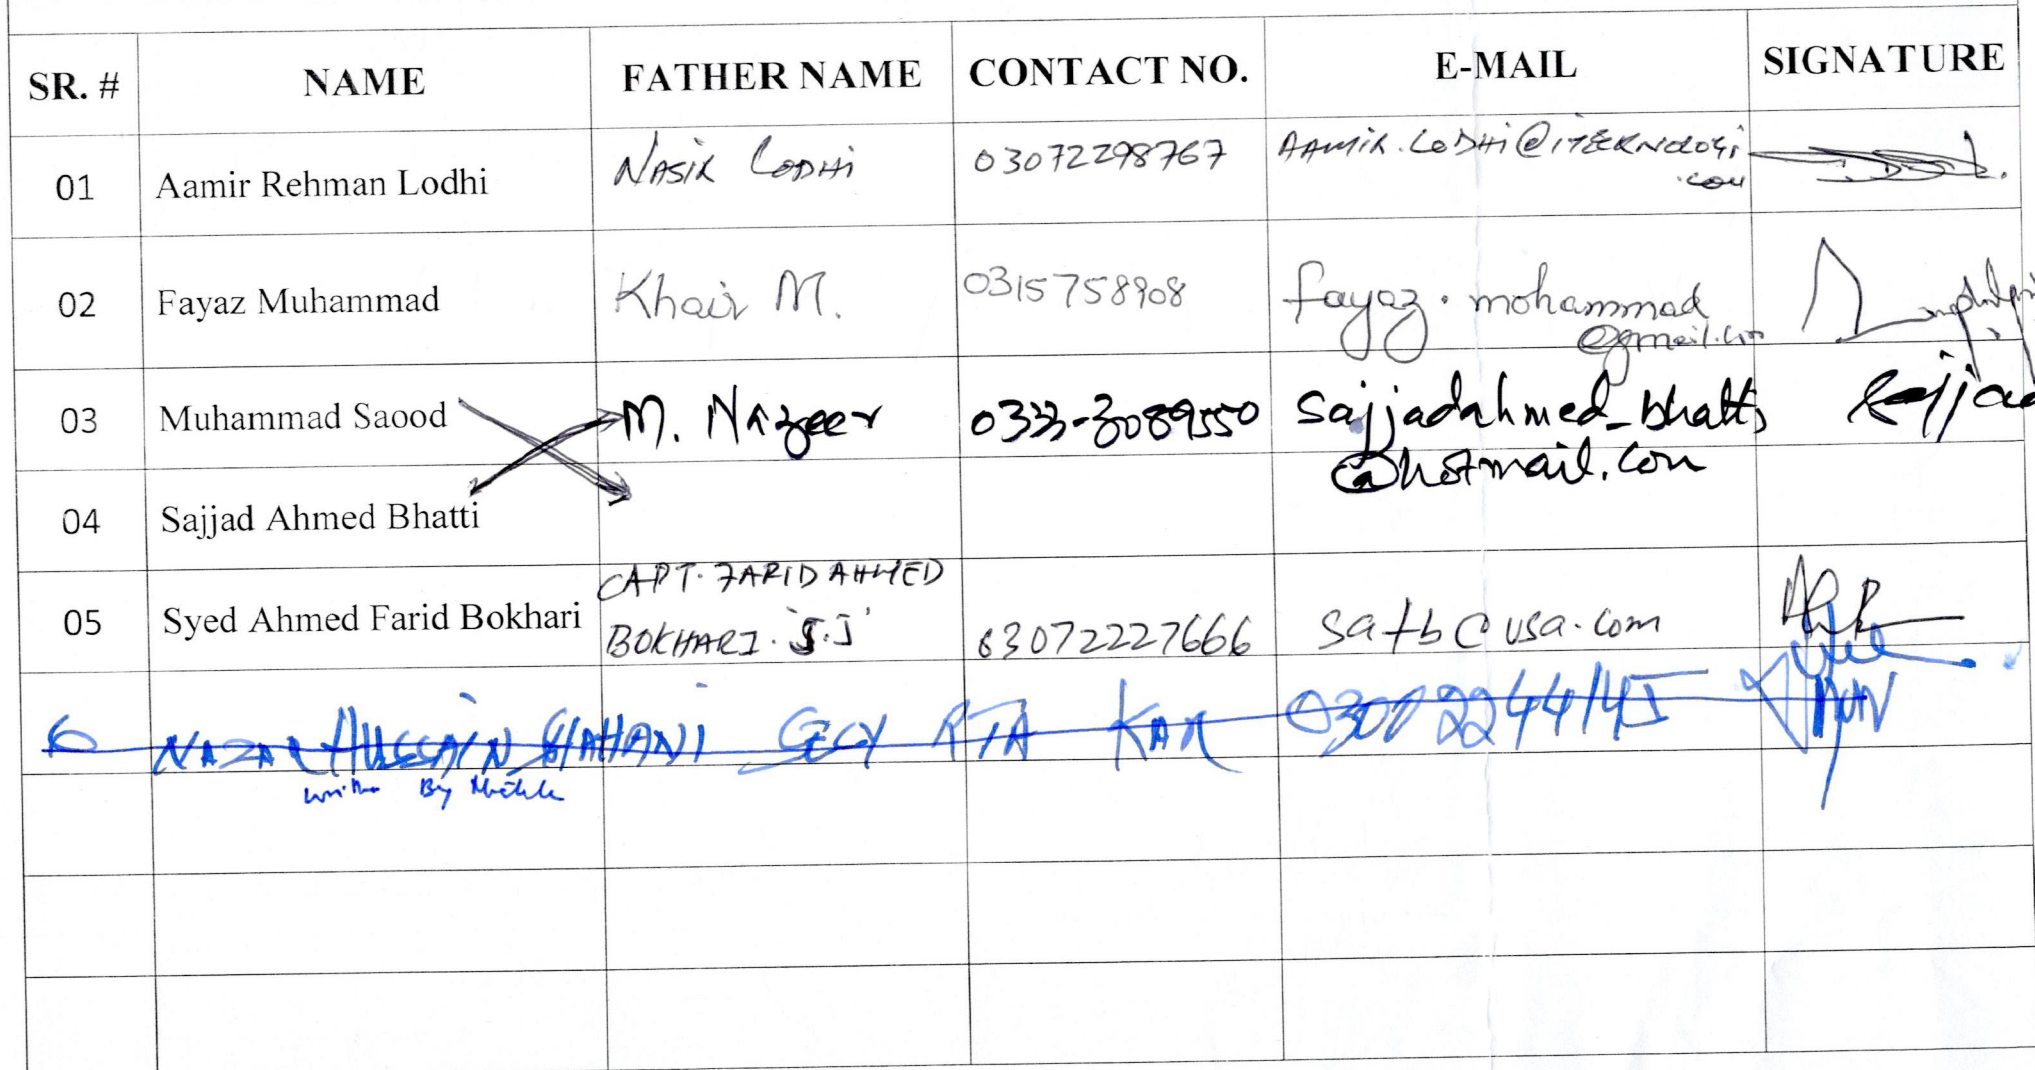 SR. # NAME FATHER NAME CONTACT NO. E-MAIL SIGNATURE
01 Aamir Rehman Lodhi NASIR LODHI 03072298767 AAMIR.LODHI@ITEKNOLOGI
.com
02 Fayaz Muhammad Khair M. 0315758908 fayaz.mohammad
@gmail.com
03 Muhammad Saood M. Nazeer 0333-3089550 sajjadahmed_bhatti Sajjad
@hotmail.com
04 Sajjad Ahmed Bhatti
CAPT. FARID AHMED
05 Syed Ahmed Farid Bokhari BOKHARI. S.J 03072227666 safb@usa.com
6 NAZAR HUSSAIN SHAHANI SECY RTA KAR 03002244145
By